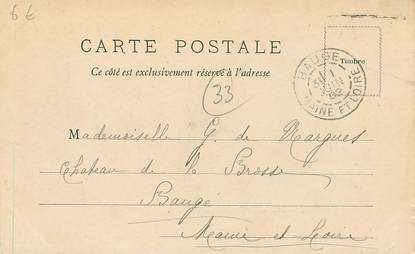 6 €
CARTE POSTALE
Ce côté est exclusivement réservé à l'adresse
Timbre
BAUGÉ
JUIN
02
MAINE ET LOIRE
33
Mademoiselle G. de Nargues
Château de la Brosse
Baugé
Maine et Loire